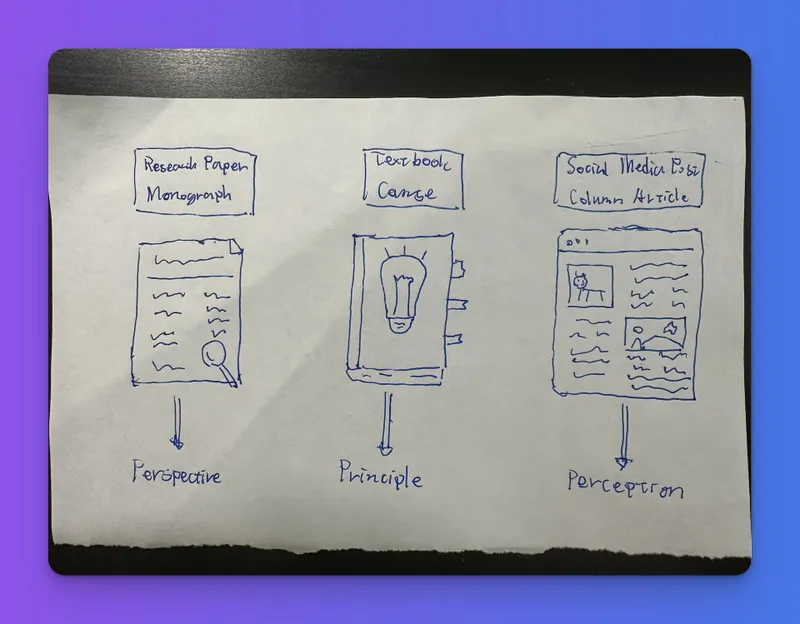 Research Paper
Monograph
Textbook
Social Media Post
Column Article
Perspective
Principle
Perception